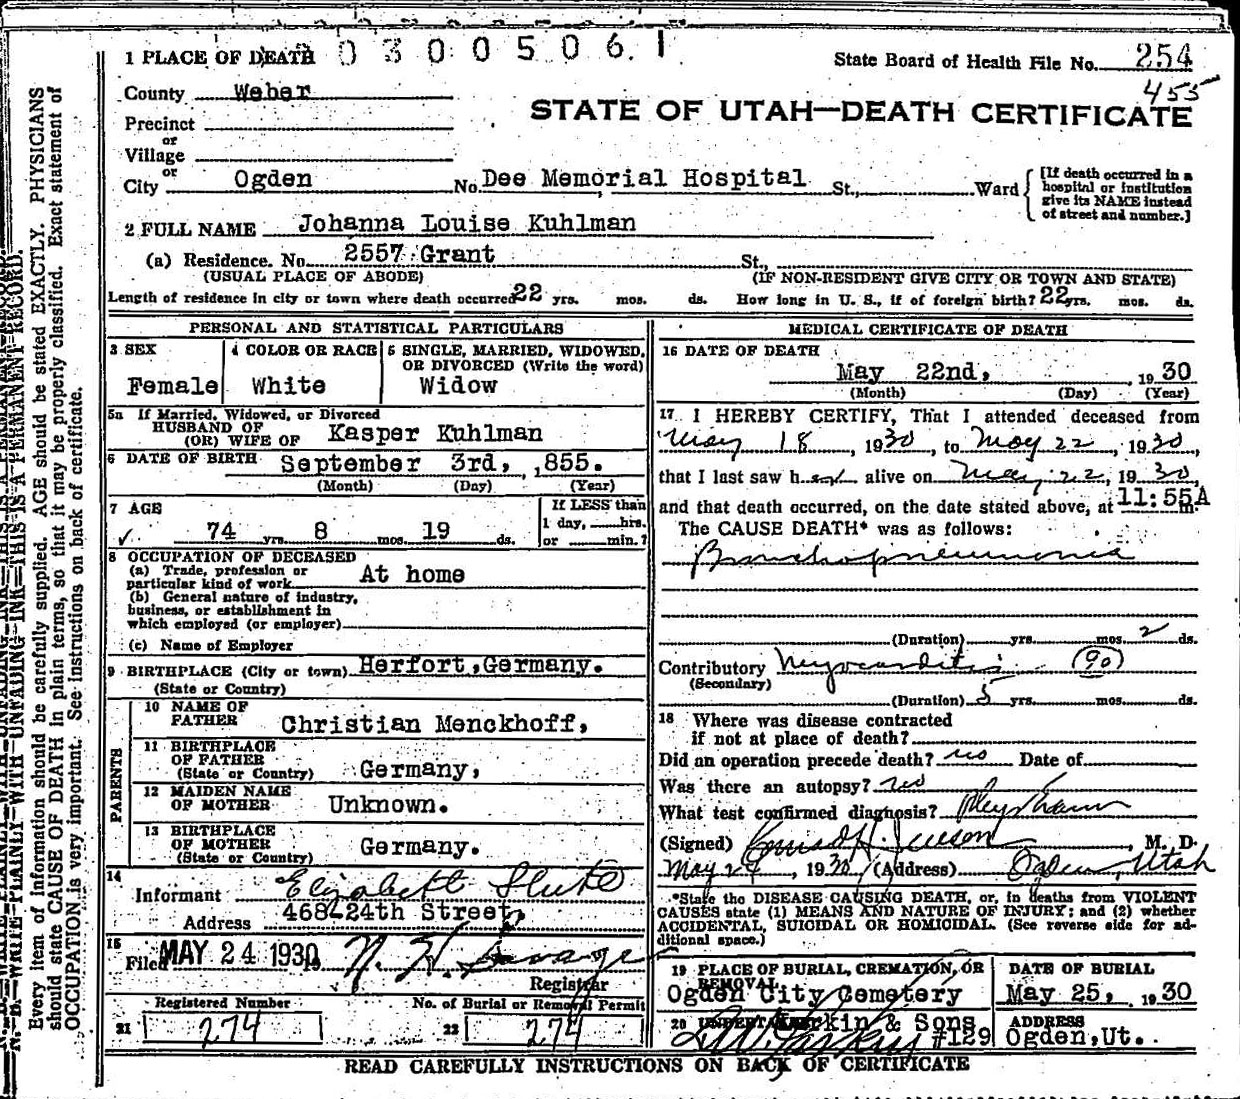 1 PLACE OF DEATH 03005061
State Board of Health File No. 254
455
STATE OF UTAH—DEATH CERTIFICATE
County Weber
Precinct
or
Village
or
City Ogden No. Dee Memorial Hospital St., Ward
[If death occurred in a
hospital or institution
give its NAME instead
of street and number.]
2 FULL NAME Johanna Louise Kuhlman
(a) Residence. No. 2557 Grant St.,
(USUAL PLACE OF ABODE) (IF NON-RESIDENT GIVE CITY OR TOWN AND STATE)
Length of residence in city or town where death occurred 22 yrs. mos. ds. How long in U. S., if of foreign birth? 22 yrs. mos. ds.
PERSONAL AND STATISTICAL PARTICULARS
3 SEX
Female
4 COLOR OR RACE
White
5 SINGLE, MARRIED, WIDOWED,
OR DIVORCED (Write the word)
Widow
5a If Married, Widowed, or Divorced
HUSBAND OF
(OR) WIFE OF Kasper Kuhlman
6 DATE OF BIRTH September 3rd, ,855.
(Month) (Day) (Year)
7 AGE
74 yrs. 8 mos. 19 ds.
If LESS than
1 day, hrs.
or min.?
8 OCCUPATION OF DECEASED
(a) Trade, profession or
particular kind of work At home
(b) General nature of industry,
business, or establishment in
which employed (or employer)
(c) Name of Employer
9 BIRTHPLACE (City or town) Herfort,Germany.
(State or Country)
PARENTS
10 NAME OF
FATHER Christian Menckhoff,
11 BIRTHPLACE
OF FATHER
(State or Country) Germany,
12 MAIDEN NAME
OF MOTHER Unknown.
13 BIRTHPLACE
OF MOTHER
(State or Country) Germany.
14
Informant Elizabeth
Address 468-24th Street,
15
Filed MAY 24 1930 N. H. Savage
Registrar
Registered Number No. of Burial or Removal Permit
21 274 22 274
MEDICAL CERTIFICATE OF DEATH
16 DATE OF DEATH
May 22nd, 1930
(Month) (Day) (Year)
17 I HEREBY CERTIFY, That I attended deceased from
May 18, 1930, to May 22, 1930,
that I last saw her alive on May 22, 1930,
and that death occurred, on the date stated above, at 11:55A m.
The CAUSE DEATH* was as follows:
Bronchopneumonia
(Duration) yrs. mos. 2 ds.
Contributory Myocarditis (90)
(Secondary)
(Duration) 5 yrs. mos. ds.
18 Where was disease contracted
if not at place of death?
Did an operation precede death? no Date of
Was there an autopsy? no
What test confirmed diagnosis? Phys Exam
(Signed) Conrad H. Jenson, M. D.
May 24, 1930 (Address) Ogden, Utah
*State the DISEASE CAUSING DEATH, or, in deaths from VIOLENT
CAUSES state (1) MEANS AND NATURE OF INJURY; and (2) whether
ACCIDENTAL, SUICIDAL OR HOMICIDAL. (See reverse side for ad-
ditional space.)
19 PLACE OF BURIAL, CREMATION, OR
REMOVAL
Ogden City Cemetery
DATE OF BURIAL
May 25, 1930
20 UNDERTAKER Larkin & Sons
#129
ADDRESS
Ogden,Ut.
READ CAREFULLY INSTRUCTIONS ON BACK OF CERTIFICATE
N. B.—WRITE PLAINLY—WITH UNFADING INK—THIS IS A PERMANENT RECORD.
Every item of information should be carefully supplied. AGE should be stated EXACTLY. PHYSICIANS
should state CAUSE OF DEATH in plain terms, so that it may be properly classified. Exact statement of
OCCUPATION is very important. See instructions on back of certificate.